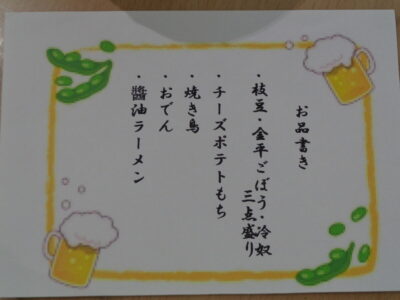 お品書き
・枝豆・金平ごぼう・冷奴
三点盛り
・チーズポテトもち
・焼き鳥
・おでん
・醤油ラーメン